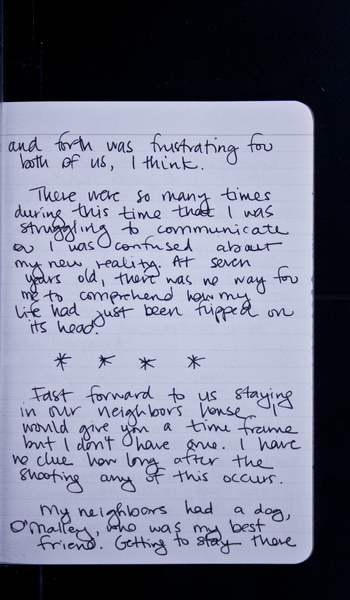 and forth was frustrating for
both of us, I think.
There were so many times
during this time that I was
struggling to communicate
or I was confused about
my new reality. At seven
years old, there was no way for
me to comprehend how my
life had just been flipped on
its head.
* * * *
Fast forward to us staying
in our neighbors house. I
would give you a time frame
but I don't have one. I have
no clue how long after the
shooting any of this occurs.
My neighbors had a dog,
O'Malley, who was my best
friend. Getting to stay there